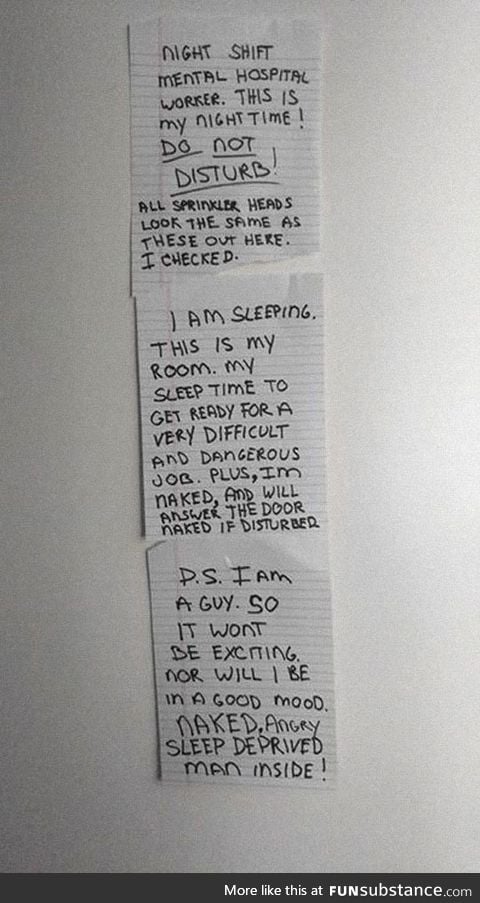 NIGHT SHIFT
MENTAL HOSPITAL
WORKER. THIS IS
my NIGHT TIME!
DO NOT
DISTURB!
ALL SPRINKLER HEADS
LOOK THE SAME AS
THESE OUT HERE.
I CHECKED.
I AM SLEEPING.
THIS IS MY
ROOM. MY
SLEEP TIME TO
GET READY FOR A
VERY DIFFICULT
AND DANGEROUS
JOB. PLUS, Im
NAKED, AND WILL
ANSWER THE DOOR
NAKED IF DISTURBED
P.S. I AM
A GUY. SO
IT WONT
BE EXCITING.
NOR WILL I BE
IN A GOOD MOOD.
NAKED, ANGRY
SLEEP DEPRIVED
MAN INSIDE!
More like this at FUNsubstance.com